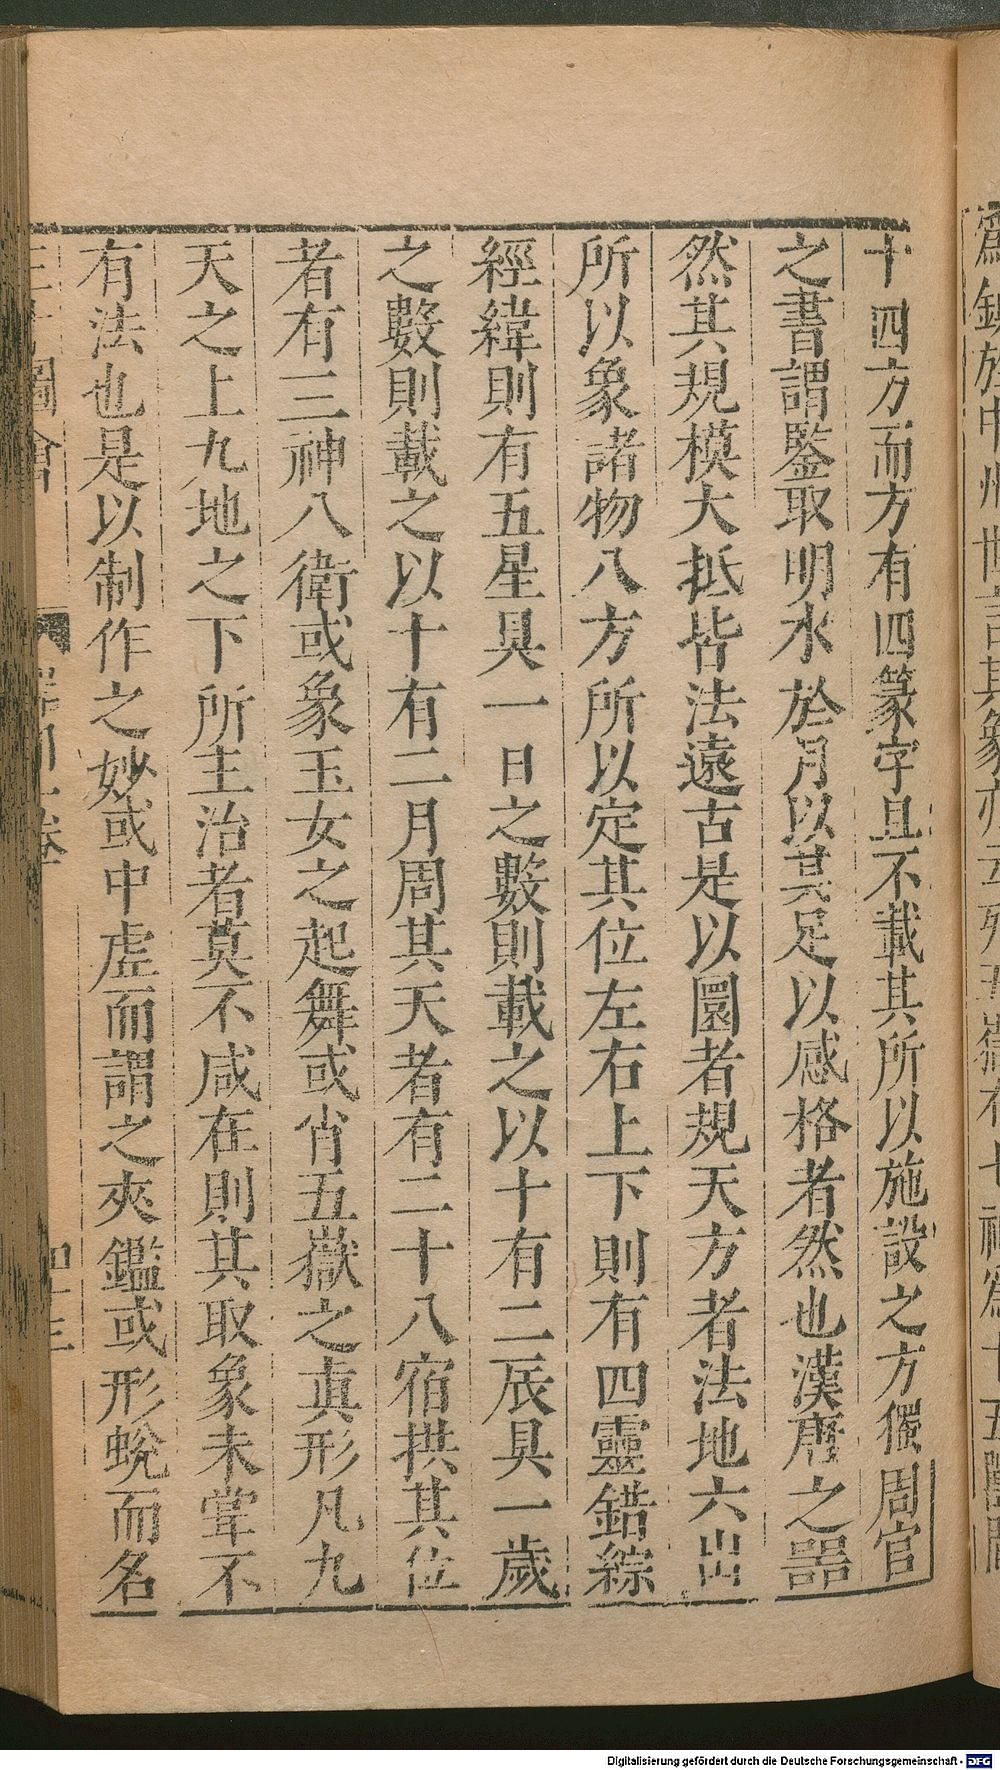 十四方而方有四篆字且不載其所以施設之方獨周官
之書謂鑒取明水於月以其足以感格者然也漢唐之器
然其規模大抵皆法遠古是以圜者規天方者法地六出
所以象諸物八方所以定其位左右上下則有四靈錯綜
經緯則有五星具一日之數則載之以十有二辰具一歲
之數則載之以十有二月周其天者有二十八宿拱其位
者有三神八衛或象玉女之起舞或肖五嶽之真形凡九
天之上九地之下所主治者莫不咸在則其取象未嘗不
有法也是以制作之妙或中虛而謂之夾鑑或形蛻而名
圖會
卷
四十三
Digitalisierung gefördert durch die Deutsche Forschungsgemeinschaft - DFG